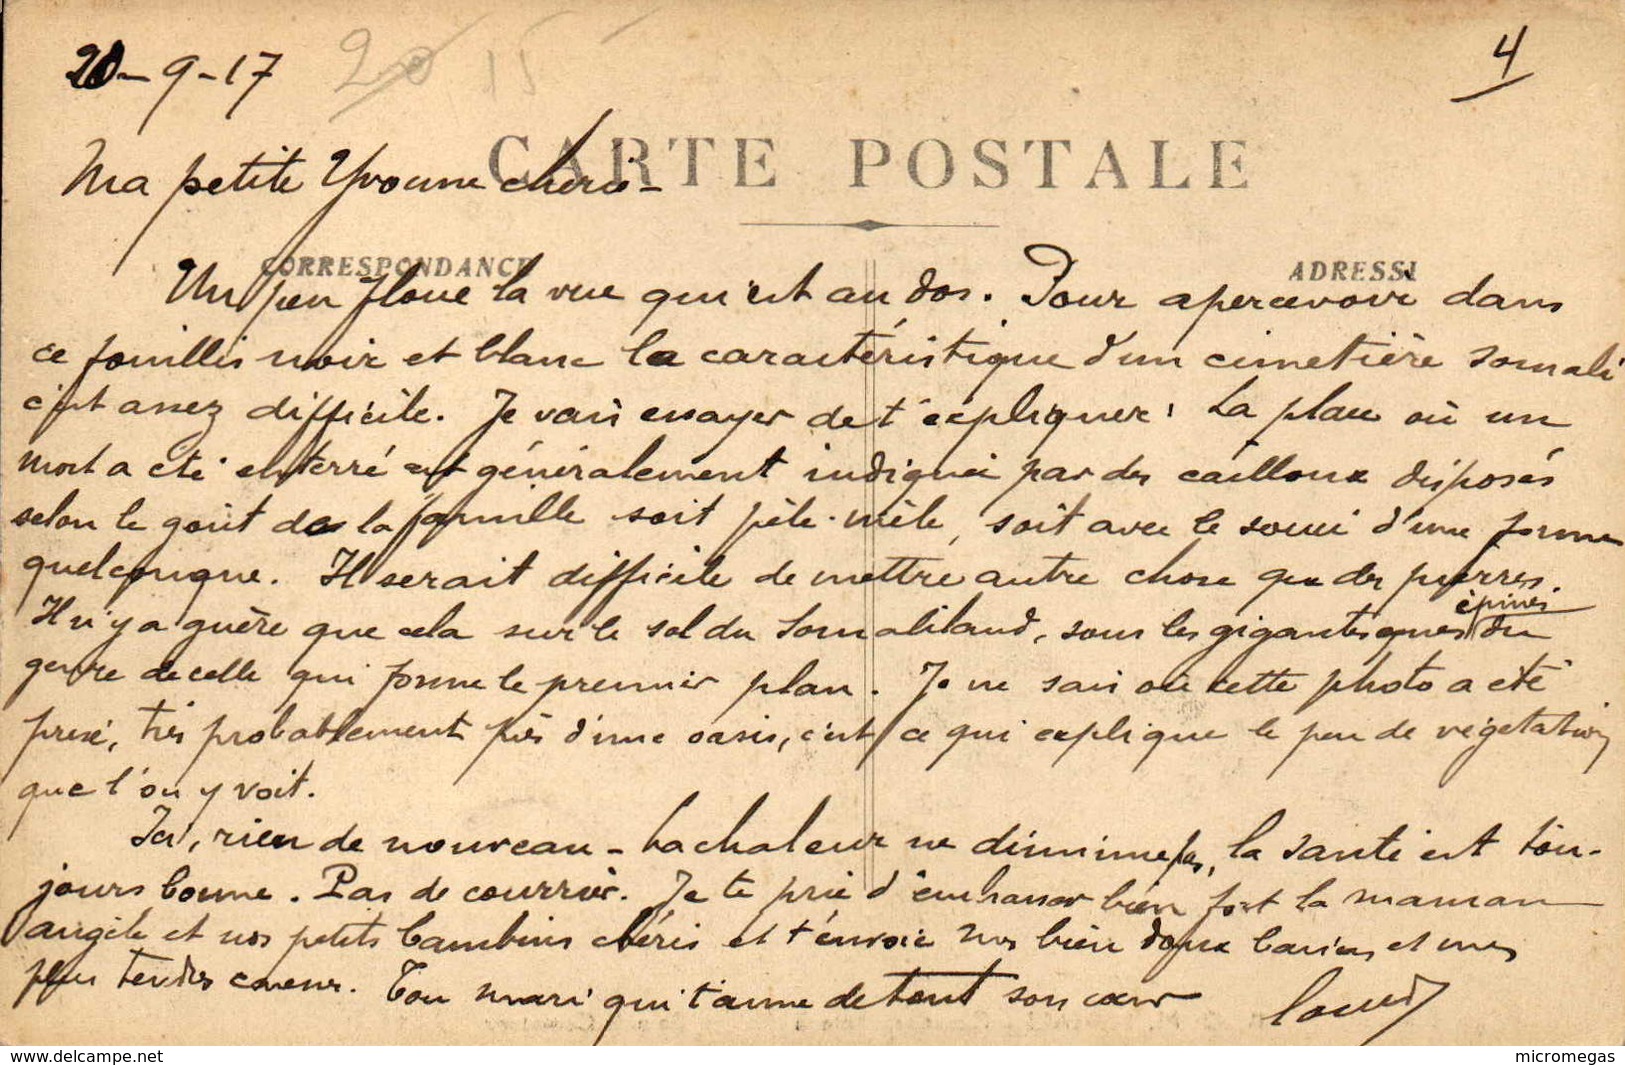 20-9-17 20 15
4
CARTE POSTALE
Ma petite Yvonne chérie -
CORRESPONDANCE
ADRESSE
Un peu floue la vue qui est au dos. Pour apercevoir dans
ce fouillis noir et blanc la caractéristique d'un cimetière somali
c'est assez difficile. Je vais essayer de t'expliquer : La place où un
mort a été enterré est généralement indiquée par des cailloux disposés
selon le goût de la famille soit pêle-mêle, soit avec le souci d'une forme
quelconque. Il serait difficile de mettre autre chose que des pierres.
Il n'y a guère que cela sur le sol du Somaliland, sous les gigantesques épines du
genre de celle qui forme le premier plan. Je ne sais où cette photo a été
prise, très probablement près d'une oasis, c'est ce qui explique le peu de végétation
que l'on y voit.
Ici, rien de nouveau - La chaleur ne diminue pas, la santé est tou-
jours bonne. Pas de courrier. Je te prie d'embrasser bien fort la maman
Angèle et nos petits bambins chéris et t'envoie mes bien doux baisers et mes
plus tendres caresses. Ton mari qui t'aime de tout son cœur
www.delcampe.net
micromegas